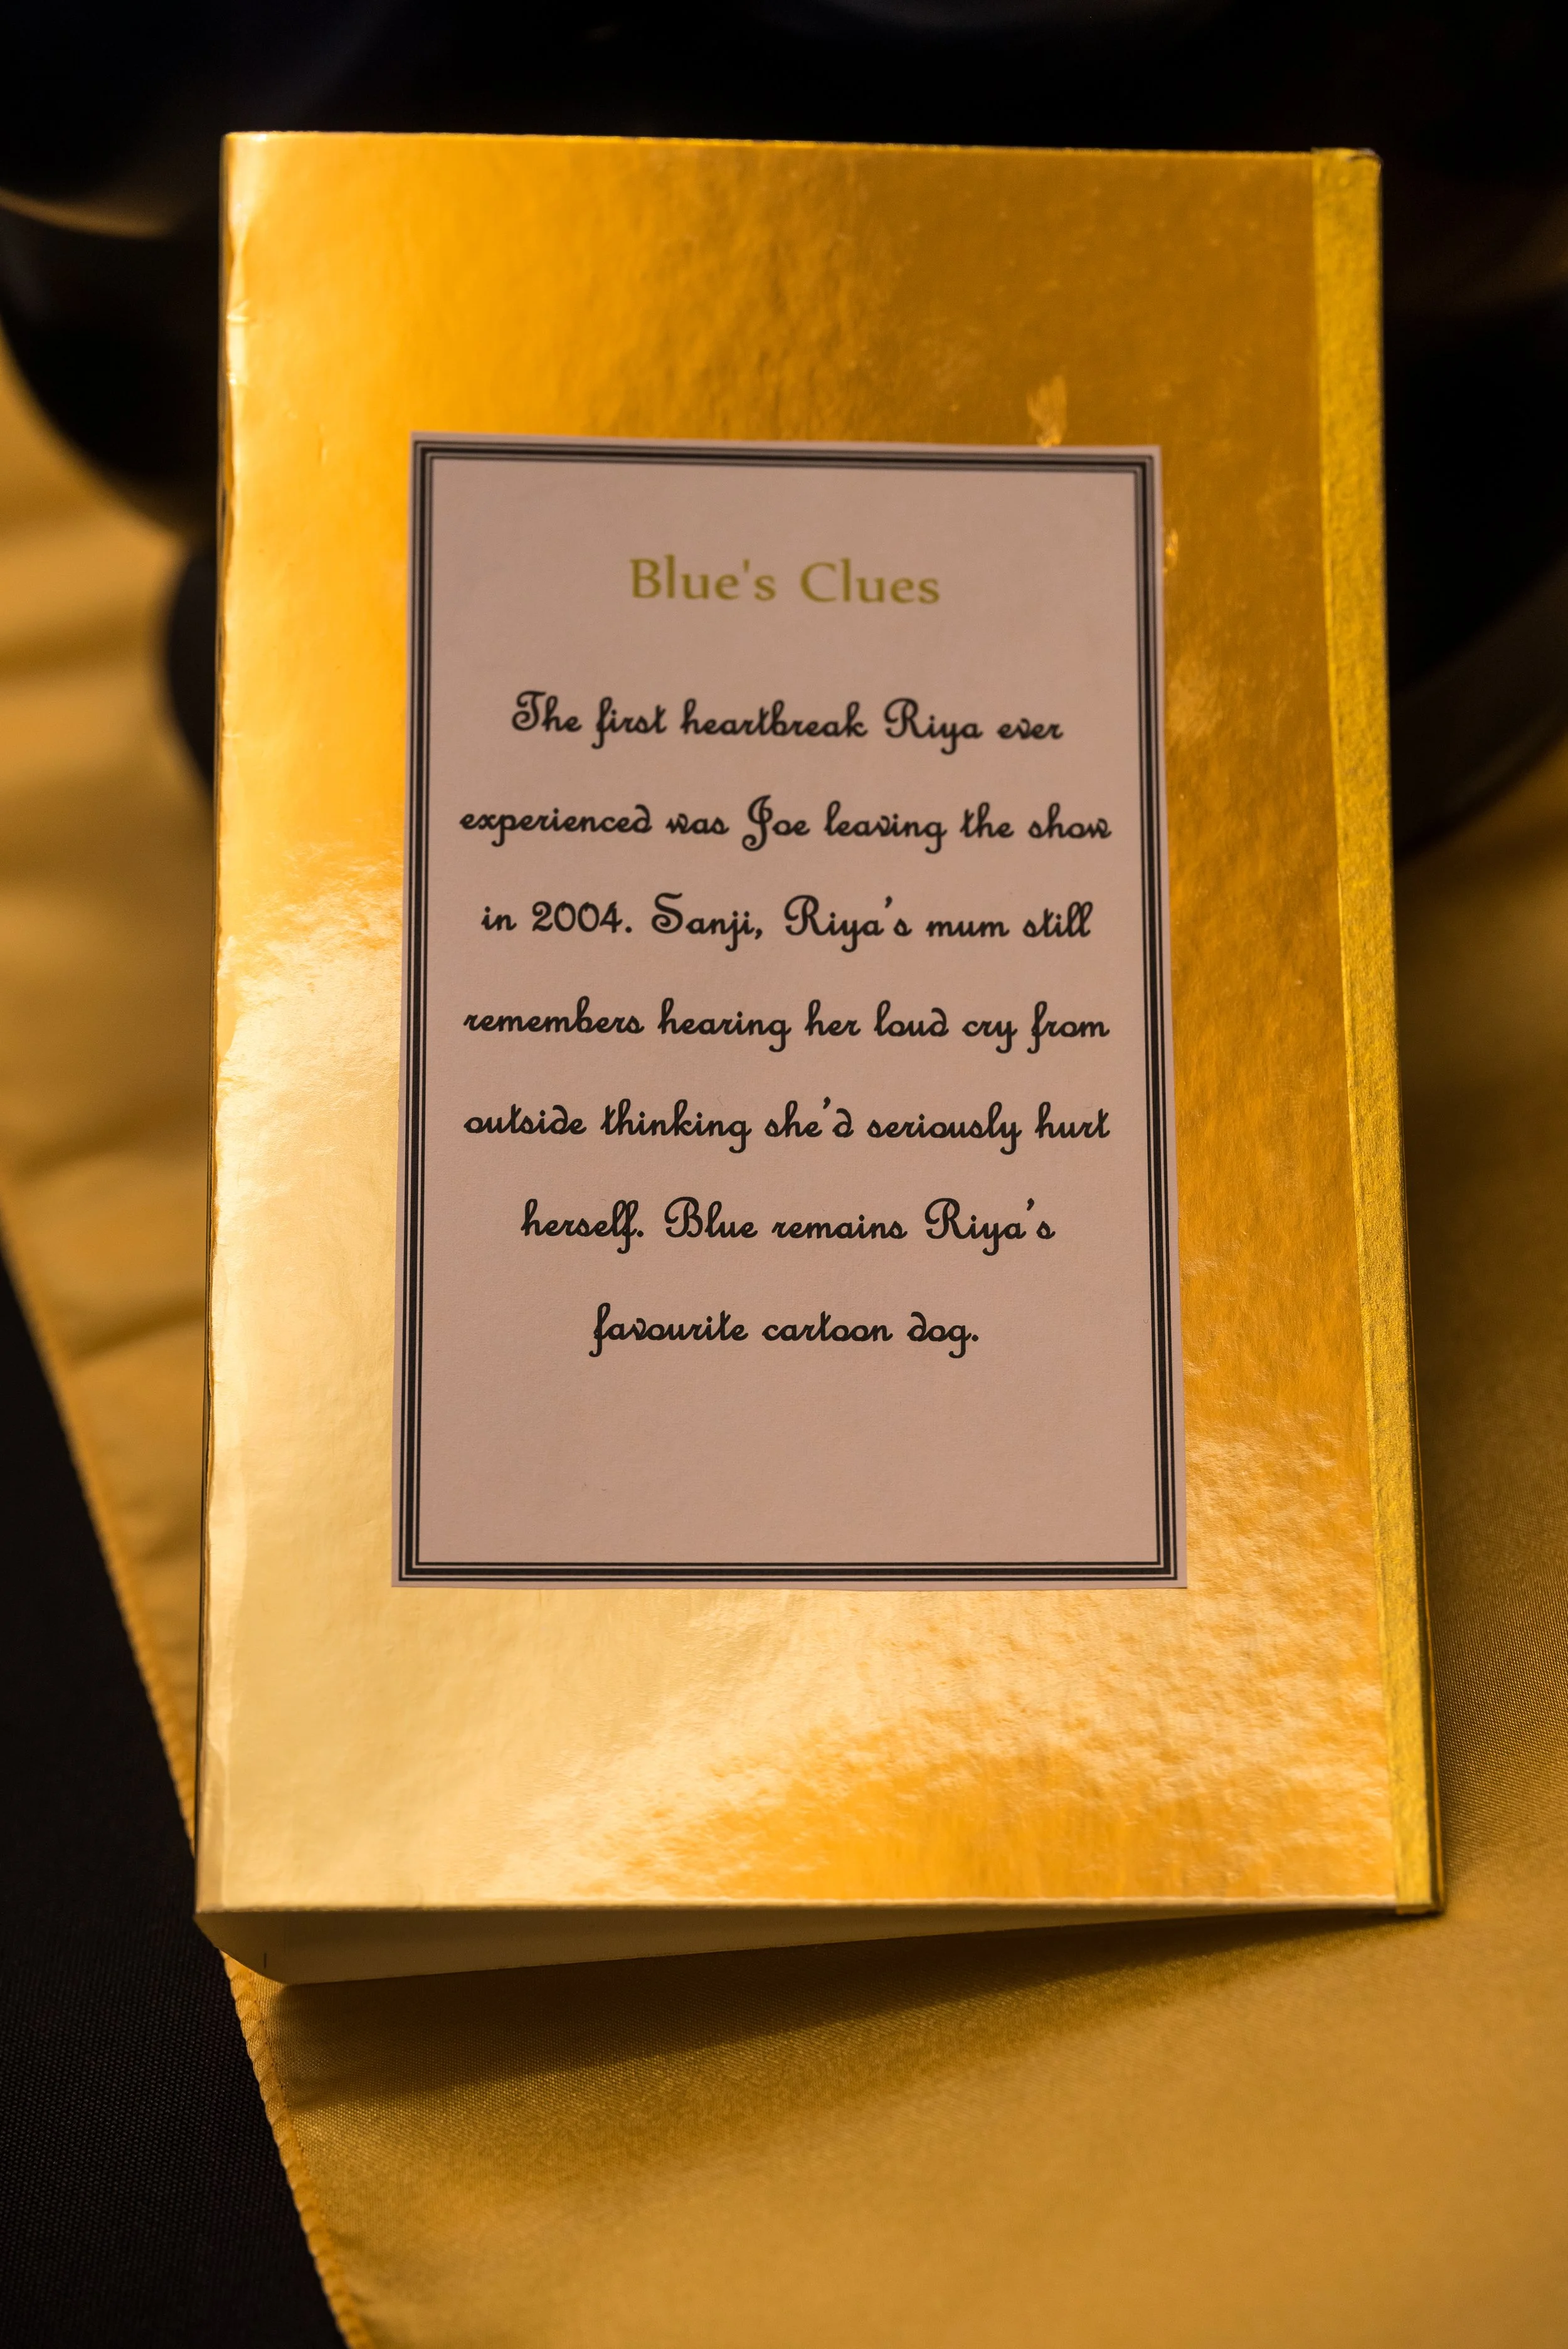 Blue's Clues
The first heartbreak Riya ever
experienced was Joe leaving the show
in 2004. Sanji, Riya's mum still
remembers hearing her loud cry from
outside thinking she'd seriously hurt
herself. Blue remains Riya's
favourite cartoon dog.